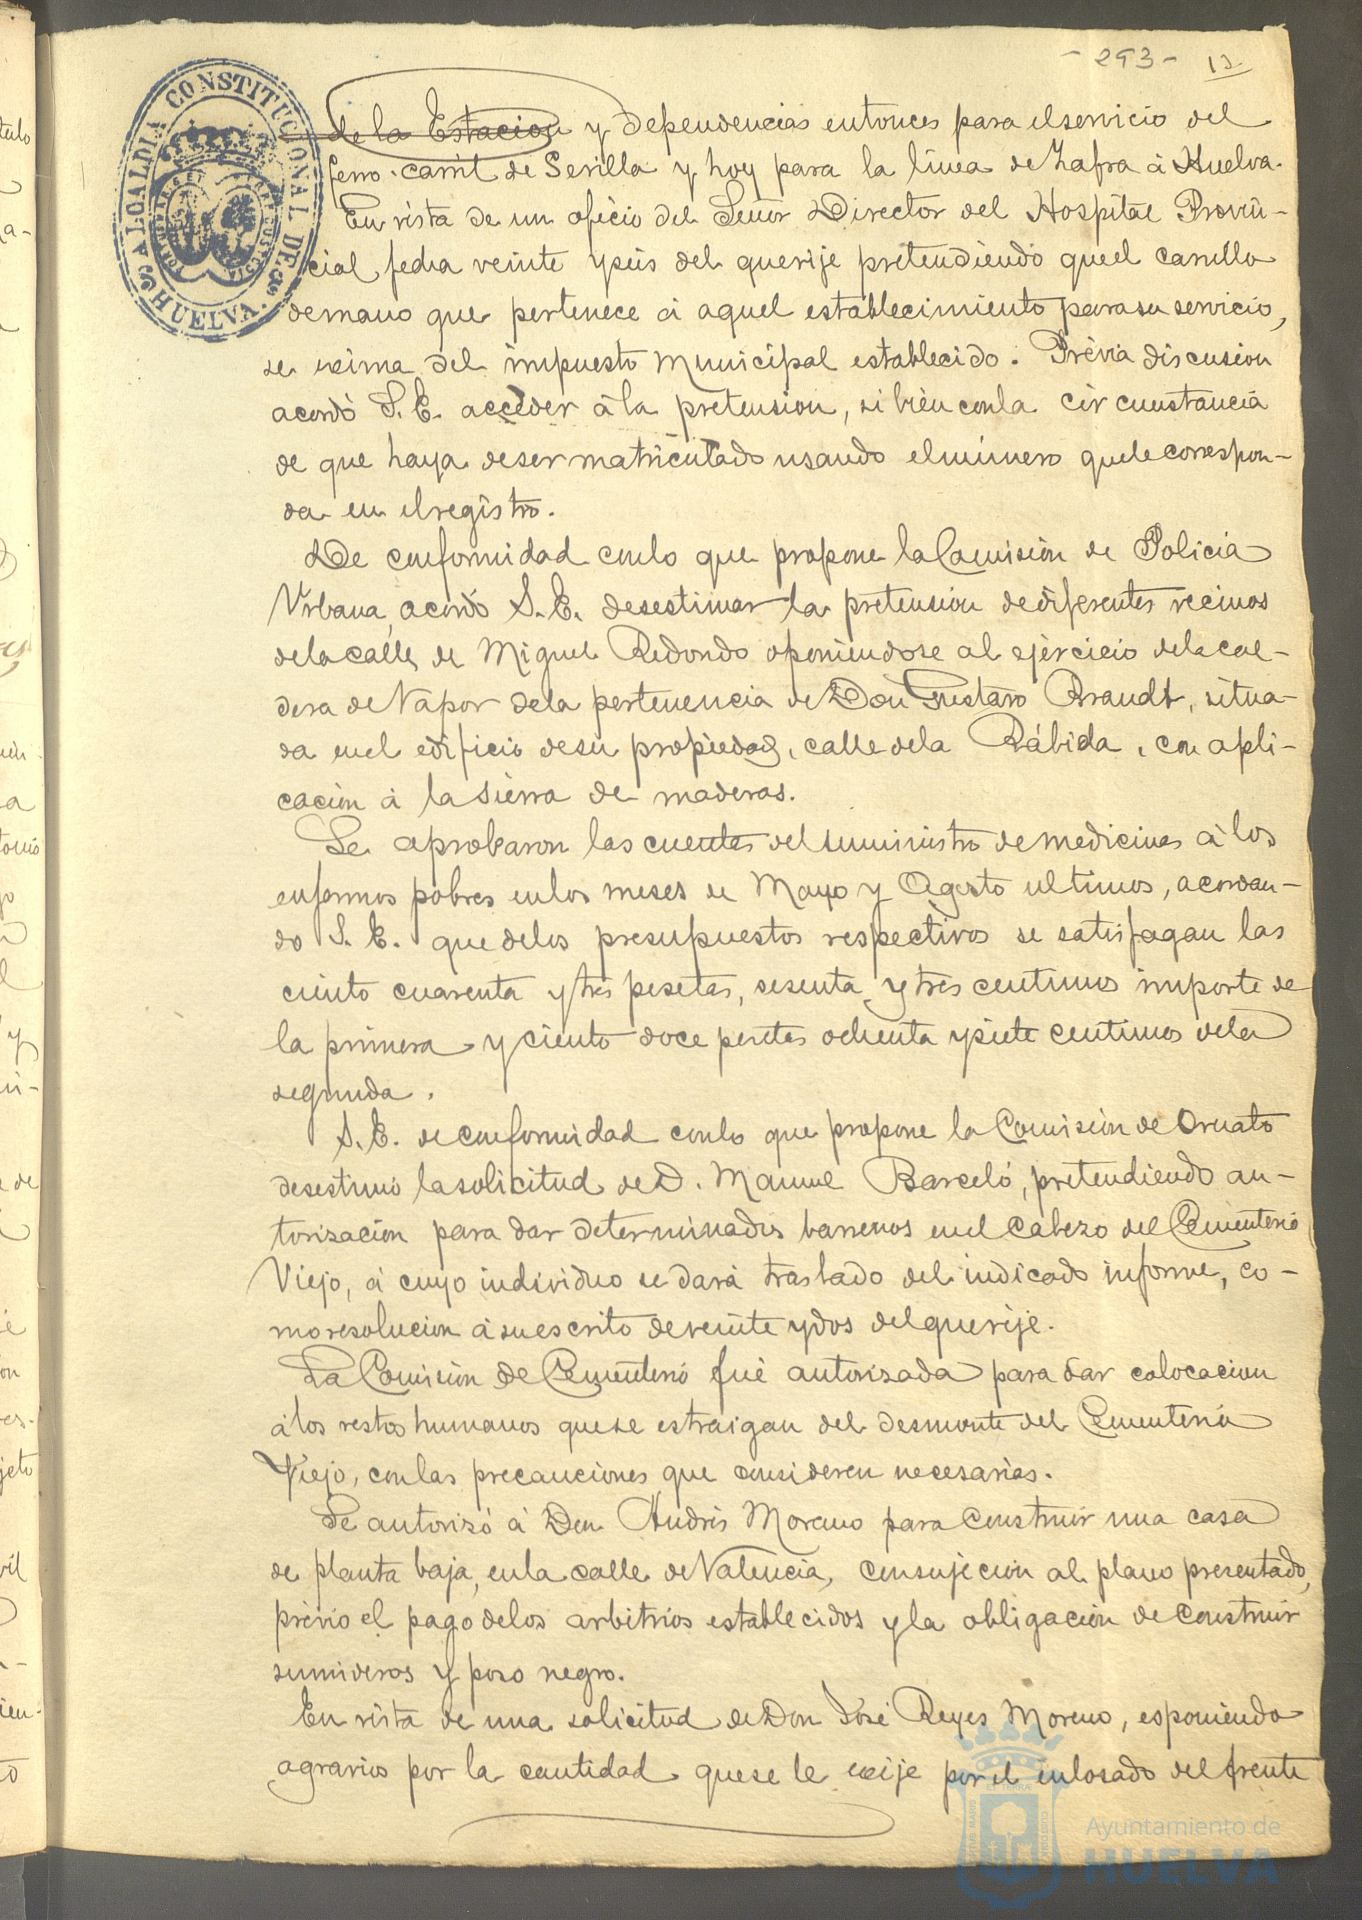 - 293 - 12
de la Estacion y dependencias entonces para el servicio del
ferro-carril de Sevilla y hoy para la linea de Zafra á Huelva.
En vista de un oficio del Señor Director del Hospital Provin-
cial fecha veinte y seis del que rije pretendiendo que el carrillo
de mano que pertenece á aquel establecimiento para su servicio,
se exima del impuesto Municipal establecido. Prévia discusion
acordó S. E. acceder á la pretension, si bien con la circunstancia
de que haya de ser matriculado usando el número que le correspon-
da en el registro.
De conformidad con lo que propone la Comision de Policia
Urbana, acordó S. E. desestimar la pretension de diferentes vecinos
de la calle de Miguel Redondo oponiendose al ejercicio de la cal-
dera de Vapor de la pertenencia de Don Gustavo Brandt, situa-
da en el edificio de su propiedad, calle de la Rábida, con apli-
cación á la sierra de maderas.
Se aprobaron las cuentas del suministro de medicinas á los
enfermos pobres en los meses de Mayo y Agosto ultimos, acordan-
do S. E. que de los presupuestos respectivos se satisfagan las
ciento cuarenta y tres pesetas, sesenta y tres centimos importe de
la primera y ciento doce pesetas ochenta y siete centimos de la
segunda.
S. E. de conformidad con lo que propone la Comision de Ornato
desestimó la solicitud de D. Manuel Barceló, pretendiendo au-
torizacion para dar determinados barrenos en el Cabezo del Cementerio
Viejo, á cuyo individuo se dará traslado del indicado informe, co-
mo resolucion á su escrito de veinte y dos del que rije.
La Comision de Cementerio fué autorizada para dar colocacion
á los restos humanos que se estraigan del desmonte del Cementerio
Viejo, con las precauciones que consideren necesarias.
Se autorizó á Don Andrés Moreno para construir una casa
de planta baja, en la calle de Valencia, con sujecion al plano presentado,
prévio el pago de los arbitrios establecidos y la obligacion de construir
sumideros y poso negro.
En vista de una solicitud de Don José Reyes Moreno, esponiendo
agravios por la cantidad que se le exije por el enlosado del frente
ALCALDIA CONSTITUCIONAL DE HUELVA.
Ayuntamiento de
HUELVA